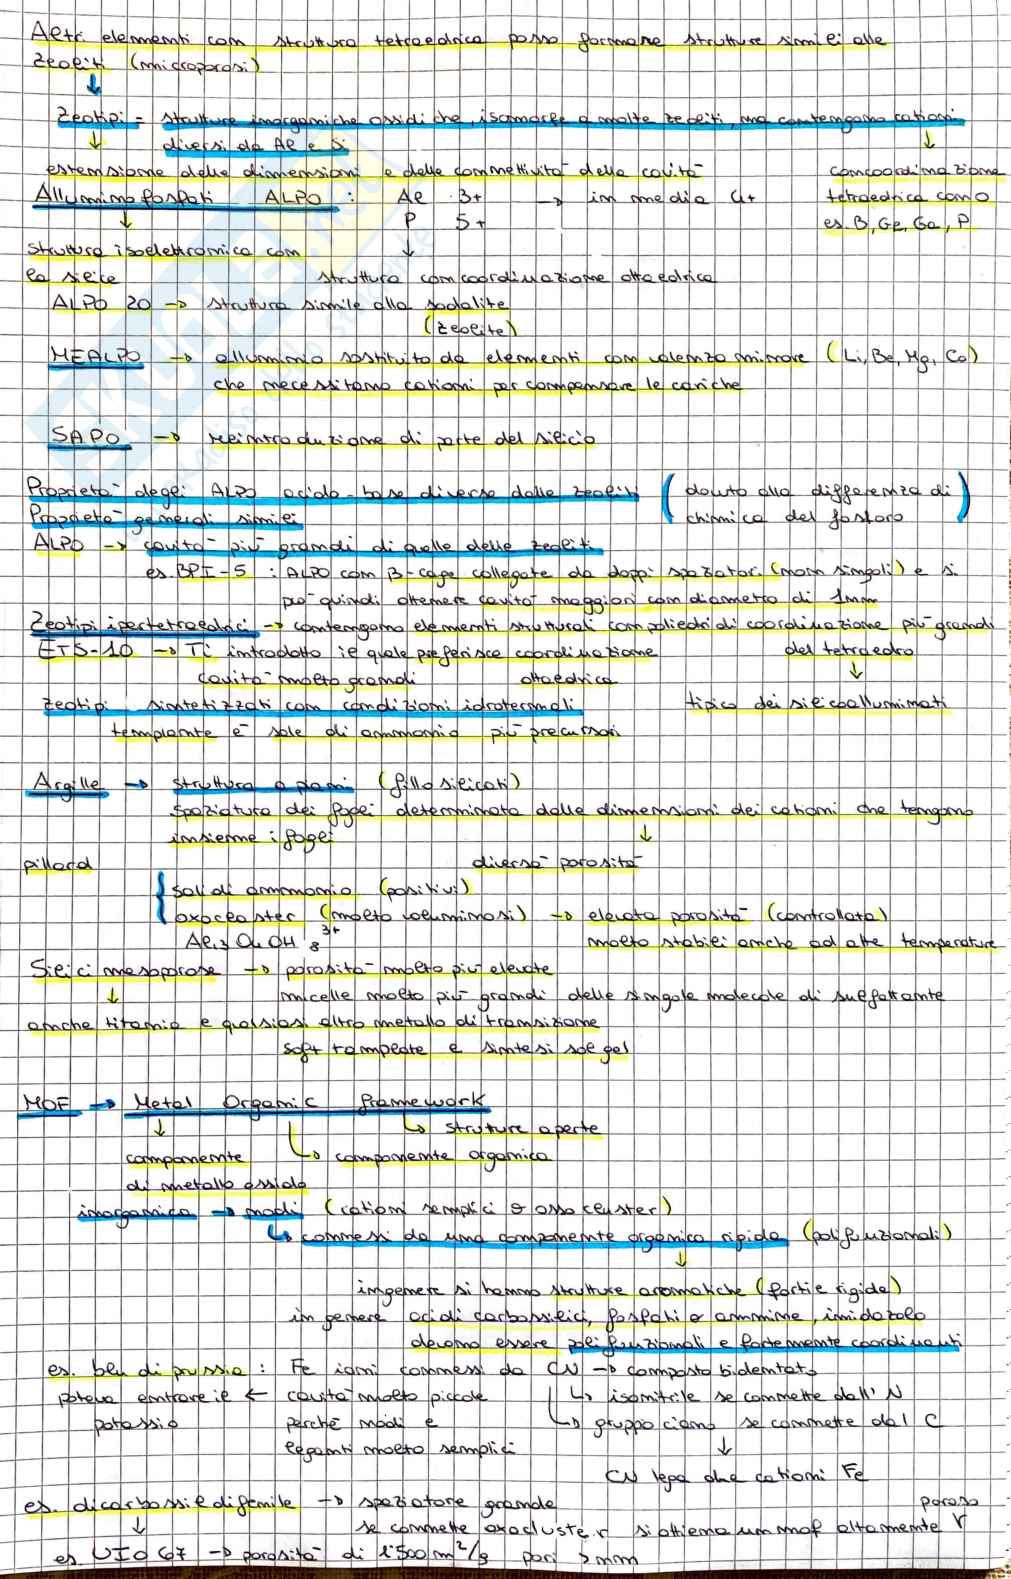 Altri elementi con struttura tetraedrica posso formare strutture simili alle
zeoliti (microporosi)
Zeotipi = strutture inorganiche ossidiche, isomorfe a molte zeoliti, ma contengono cationi
diversi da Al e Si
estensione delle dimensioni e delle connettività della cavità con coordinazione
Alluminofosfati ALPO : Al 3+ → in media 4+ tetraedrica con O
P 5+ es. B, Ge, Ga, P
struttura isoelettronica con
la silice struttura con coordinazione ottaedrica
ALPO 20 → struttura simile alla sodalite
(zeolite)
MEALPO → alluminio sostituito da elementi con valenza minore (Li, Be, Mg, Co)
che necessitano cationi per compensare le cariche
SAPO → reintroduzione di parte del silicio
Proprietà degli ALPO acido-base diverse dalle zeoliti (dovuto alla differenza di
Proprietà generali simili chimica del fosforo)
ALPO → cavità più grandi di quelle delle zeoliti
es. BPI-5 : ALPO con β-cage collegate da doppi spaziatori (non singoli) e si
può quindi ottenere cavità maggiori con diametro di 1nm
Zeotipi ipertetraedrici → contengono elementi strutturali con poliedri di coordinazione più grandi
ETS-10 → Ti introdotto il quale preferisce coordinazione del tetraedro
cavità molto grandi ottaedrica
zeotipi sintetizzati con condizioni idrotermali tipico dei silicoalluminati
templante è sale di ammonio più precursori
Argille → struttura a piani (fillosilicati)
Spaziatura dei fogli determinata dalle dimensioni dei cationi che tengono
insieme i fogli
pillard diversa porosità
sali di ammonio (positivi)
oxocluster (molto voluminosi) → elevata porosità (controllata)
Al13 O4 OH 8 3+ molto stabili anche ad alte temperature
Silici mesoporose → porosità molto più elevate
micelle molto più grandi delle singole molecole di surfattante
anche titania e qualsiasi altro metallo di transizione
soft template e sintesi sol gel
MOF → Metal Organic framework
→ strutture aperte
componente → componente organica
di metallo ossido
inorganica → nodi (cationi semplici o osso cluster)
→ connessi da una componente organica rigida (polifunzionali)
in genere si hanno strutture aromatiche (parti e rigide)
in genere acidi carbossilici, fosfati o ammine, imidazolo
devono essere polifunzionali e fortemente coordinanti
es. blu di prussia : Fe ioni connessi da CN → composto bidentato
poteva entrare il ← cavità molto piccole → isonitrile se connette dall' N
potassio perché nodi e → gruppo ciano se connette dal C
leganti molto semplici
CN lega due cationi Fe
es. dicarbossildifenile → spaziatore grande poroso
se connette oxocluster si ottiene un mof altamente
es. UIO 67 → porosità di 1500 m²/g pori > nm